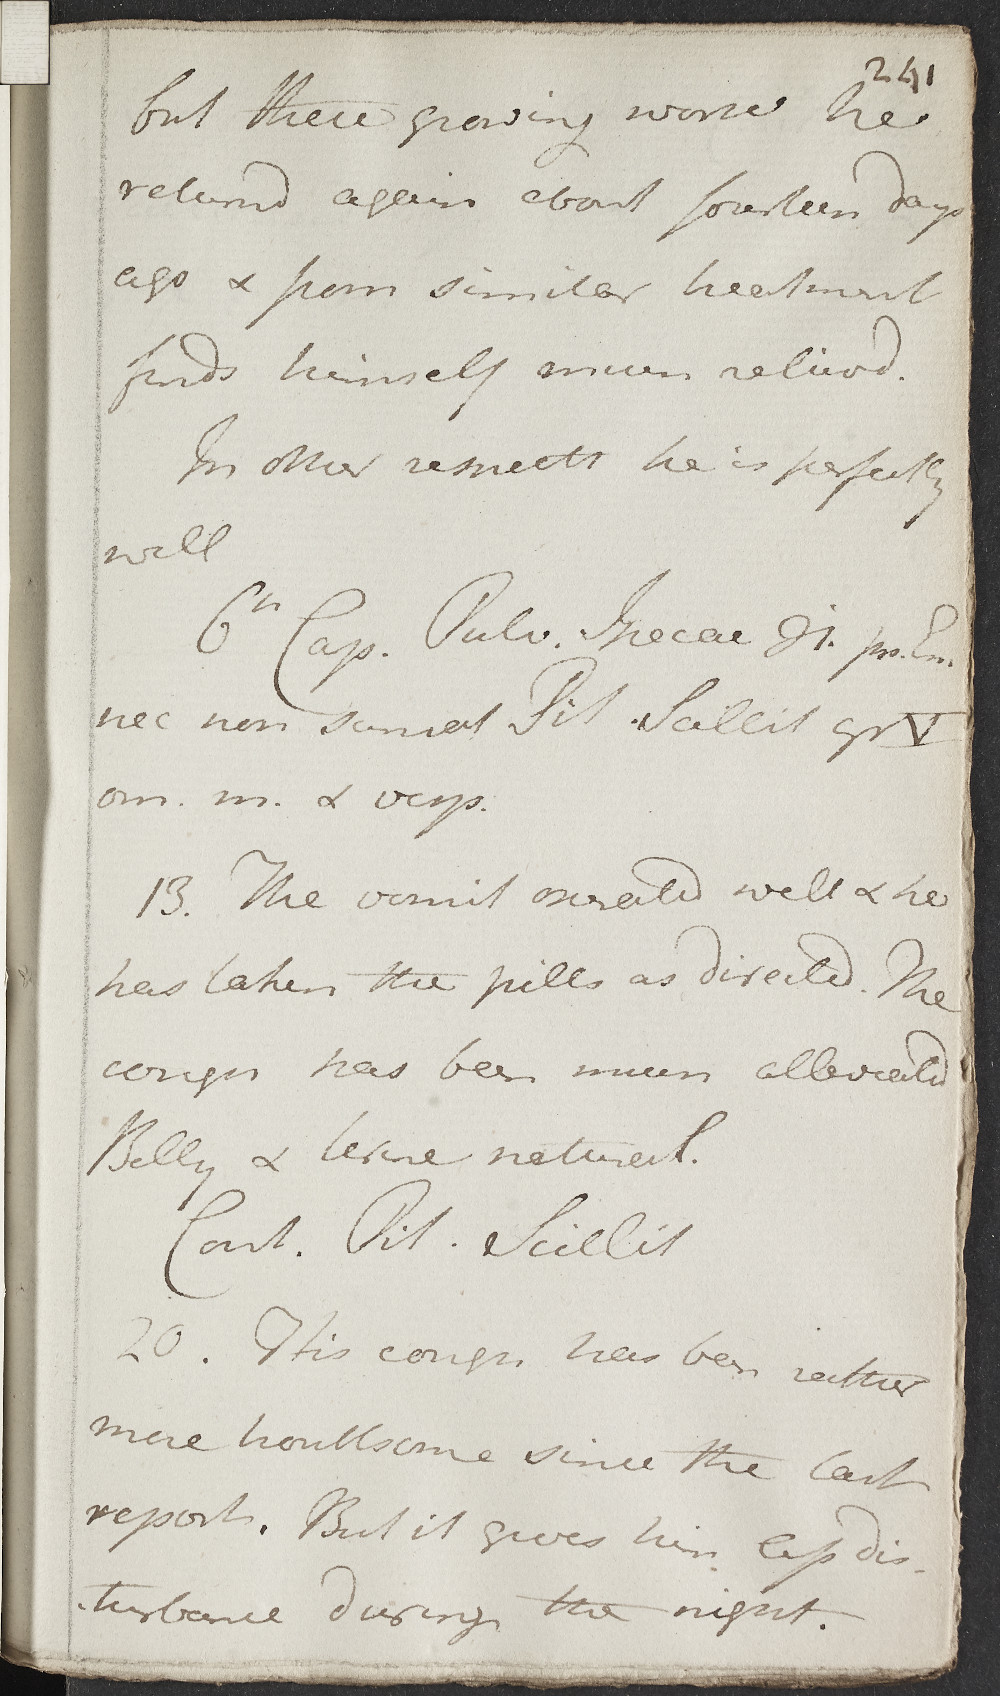 241
but these growing worse he
returnd again about fourteen days
ago & from similar treatment
finds himself much relievd.
In other respects he is perfectly
well
6th Cap. Pulv. Ipecac ʒi. pro. Em.
nec non sumat Pil. Scillit gr V
om. m. & vesp.
13. The vomit operated well & he
has taken the pills as directed. The
cough has been much alleviated
Belly & Urine natural.
Cont. Pil. Scillit
20. His cough has been rather
more troublsome since the last
report. But it gives him less dis-
turbance during the night.